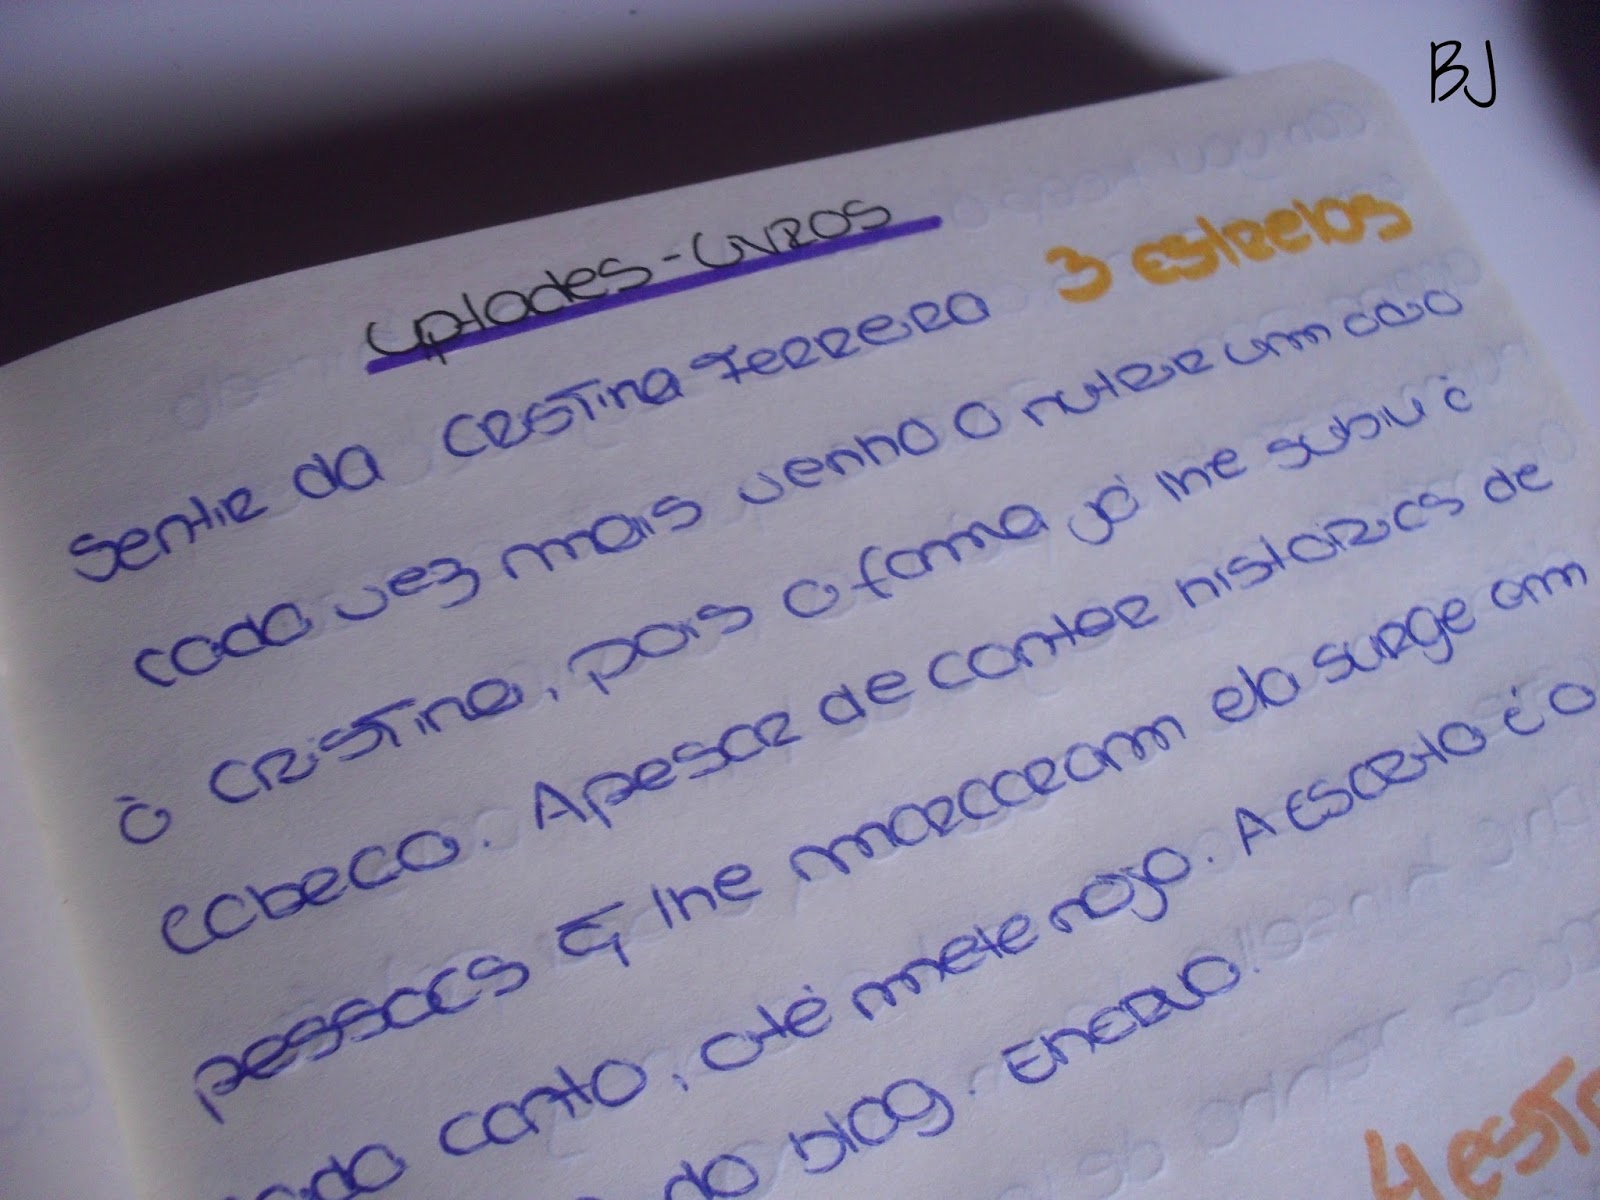 BJ
Uptades - Livros
Sentir da Cristina Ferreira 3 estrelas
cada vez mais venho a nutrir um odio
à Cristina, pois a fama já lhe subiu à
cabeça. Apesar de contar historias de
pessoas q lhe marcaram ela surge em
cada canto, até mete nojo. A escrita é a
do blog. Enervo.
4 est